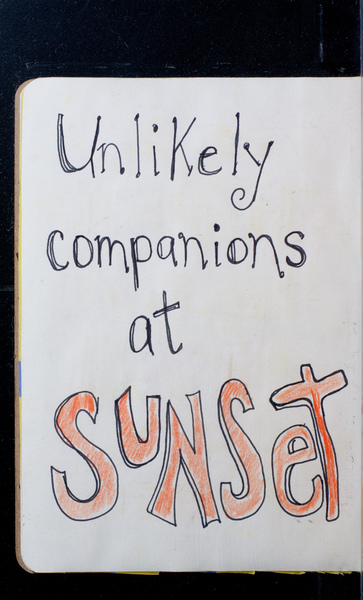 Unlikely
companions
at
SUNSeT